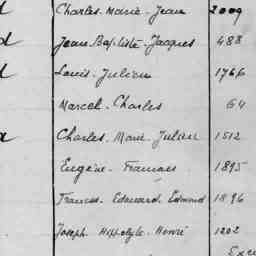 d Charles. Marie. Jean 2009
d Jean. Baptiste. Jacques 488
d Louis. Julien 1766
Marcel. Charles 64
a Charles. Marie. Julien 1512
Eugène. François 1895
Francis. Edouard. Edmond 1896
Joseph. Hippolyte. Henri 1202
Exc